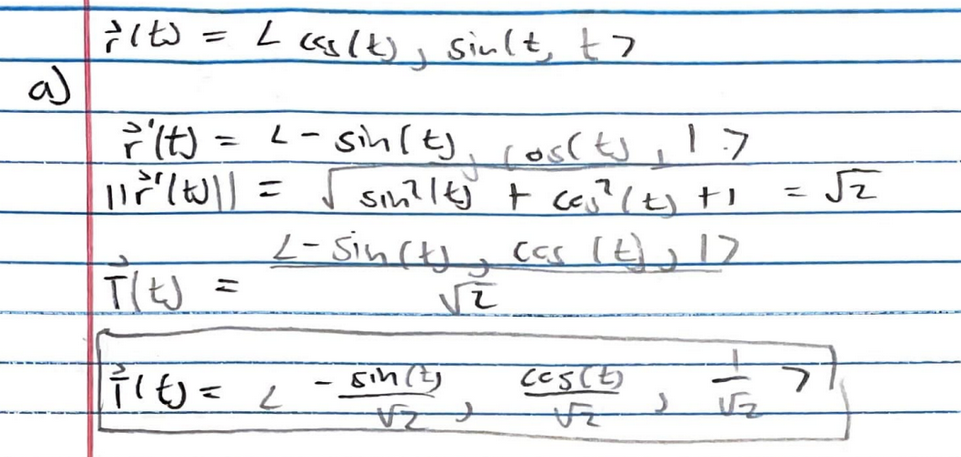 r⃗(t) = < cos(t), sin(t, t >
a)
r⃗'(t) = < - sin(t), cos(t), 1 >
||r⃗'(t)|| = √(sin²(t) + cos²(t) + 1) = √2
T⃗(t) = <- sin(t), cos(t), 1> / √2
T⃗(t) = < - sin(t)/√2, cos(t)/√2, 1/√2 >